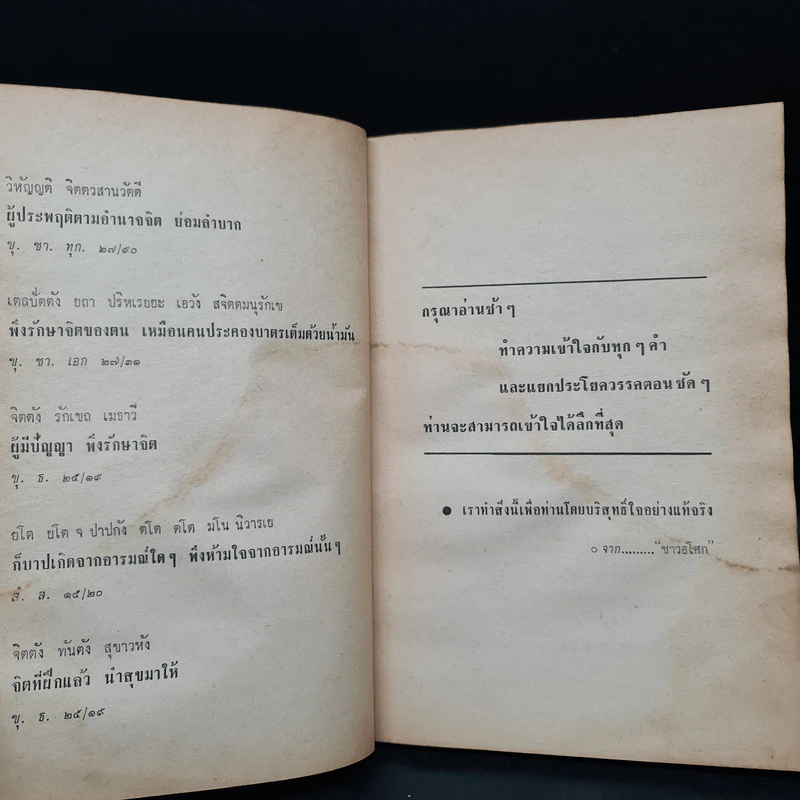 วิหัญญติ จิตตวสานวัตตี
ผู้ประพฤติตามอำนาจจิต ย่อมลำบาก
ขุ. ชา. ทุก. ๒๗/๙๐
เตลปัตตัง ยถา ปริหเรยยะ เอวัง สจิตตมนุรักเข
พึงรักษาจิตของตน เหมือนคนประคองบาตรเต็มด้วยน้ำมัน
ขุ. ชา. เอก ๒๗/๓๑
จิตตัง รักเขถ เมธาวี
ผู้มีปัญญา พึงรักษาจิต
ขุ. ธ. ๒๕/๑๙
ยโต ยโต จ ปาปกัง ตโต ตโต มโน นิวารเย
ก็บาปเกิดจากอารมณ์ใด ๆ พึงห้ามใจจากอารมณ์นั้น ๆ
สํ. ส. ๑๕/๒๐
จิตตัง ทันตัง สุขาวหัง
จิตที่ฝึกแล้ว นำสุขมาให้
ขุ. ธ. ๒๕/๑๙
กรุณาอ่านช้า ๆ
ทำความเข้าใจกับทุก ๆ คำ
และแยกประโยควรรคตอน ชัด ๆ
ท่านจะสามารถเข้าใจได้ลึกที่สุด
● เราทำสิ่งนี้เพื่อท่านโดยบริสุทธิ์ใจอย่างแท้จริง
๐ จาก.........“ชาวอโศก”